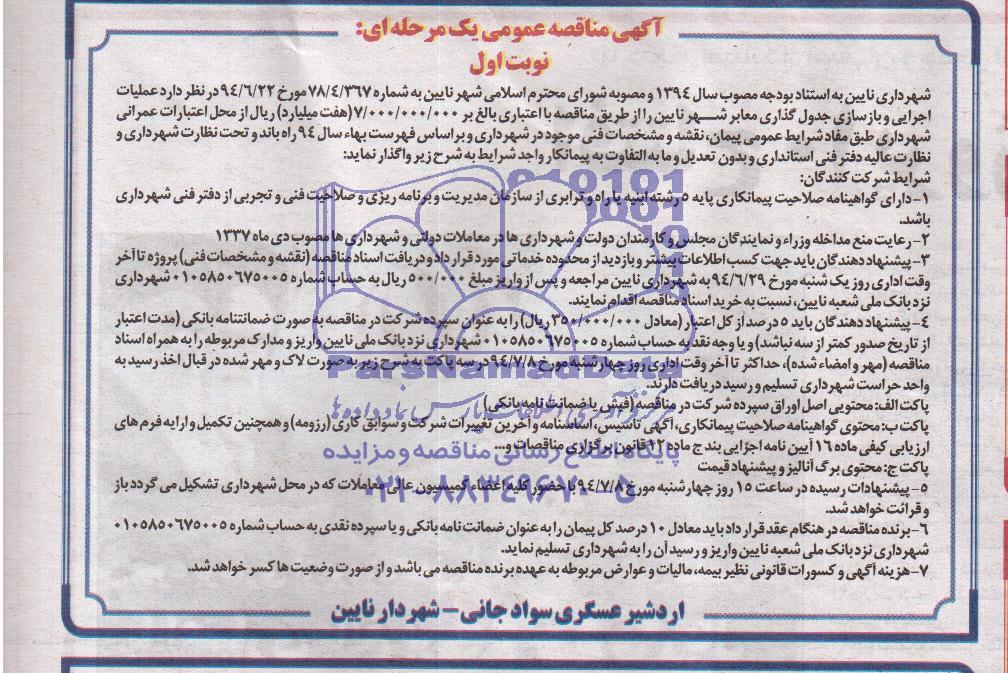 آگهی مناقصه عمومی یک مرحله ای:
نوبت اول
شهرداری نایین به استناد بودجه مصوب سال ۱۳۹۴ و مصوبه شورای محترم اسلامی شهر نایین به شماره ۷۸/۴/۳۶۷ مورخ ۹۴/۶/۲۲ در نظر دارد عملیات
اجرایی و بازسازی جدول گذاری معابر شهر نایین را از طریق مناقصه با اعتباری بالغ بر ۷/۰۰۰/۰۰۰/۰۰۰ (هفت میلیارد) ریال از محل اعتبارات عمرانی
شهرداری طبق مفاد شرایط عمومی پیمان، نقشه و مشخصات فنی موجود در شهرداری و براساس فهرست بهاء سال ۹۴ راه باند و تحت نظارت شهرداری و
نظارت عالیه دفتر فنی استانداری و بدون تعدیل و ما به التفاوت به پیمانکار واجد شرایط به شرح زیر واگذار نماید:
شرایط شرکت کنندگان:
۱- دارای گواهینامه صلاحیت پیمانکاری پایه ۵ رشته ابنیه یا راه و ترابری از سازمان مدیریت و برنامه ریزی و صلاحیت فنی و تجربی از دفتر فنی شهرداری
باشد.
۲- رعایت منع مداخله وزراء و نمایندگان مجلس و کارمندان دولت و شهرداری ها در معاملات دولتی و شهرداری ها مصوب دی ماه ۱۳۳۷
۳- پیشنهاد دهندگان باید جهت کسب اطلاعات بیشتر و بازدید از محدوده خدماتی مورد قرار داد و دریافت اسناد مناقصه (نقشه و مشخصات فنی) پروژه تا آخر
وقت اداری روز یک شنبه مورخ ۹۴/۶/۲۹ به شهرداری نایین مراجعه و پس از واریز مبلغ ۵۰۰/۰۰۰ ریال به حساب شماره ۰۱۰۵۸۵۰۶۷۵۰۰۵ شهرداری
نزد بانک ملی شعبه نایین، نسبت به خرید اسناد مناقصه اقدام نمایند.
۴- پیشنهاد دهندگان باید ۵ درصد از کل اعتبار (معادل ۳۵۰/۰۰۰/۰۰۰ ریال) را به عنوان سپرده شرکت در مناقصه به صورت ضمانتنامه بانکی (مدت اعتبار
از تاریخ صدور کمتر از سه نباشد) و یا وجه نقد به حساب شماره ۰۱۰۵۸۵۰۶۷۵۰۰۵ شهرداری نزد بانک ملی نایین واریز و مدارک مربوطه را به همراه اسناد
مناقصه (مهر و امضاء شده)، حداکثر تا آخر وقت اداری روز چهارشنبه مورخ ۹۴/۷/۸ در سه پاکت به شرح زیر به صورت لاک و مهر شده در قبال اخذ رسید به
واحد حراست شهرداری تسلیم و رسید دریافت دارند.
پاکت الف: محتویی اصل اوراق سپرده شرکت در مناقصه (فیش یا ضمانت نامه بانکی)
پاکت ب: محتوی گواهینامه صلاحیت پیمانکاری، آگهی تاسیس، اساسنامه و آخرین تغییرات شرکت و سوابق کاری (رزومه) و همچنین تکمیل و ارایه فرم های
ارزیابی کیفی ماده ۱۶ آیین نامه اجرایی بند ج ماده ۱۲ قانون برگزاری مناقصات و...
پاکت ج: محتوی برگ آنالیز و پیشنهاد قیمت
۵- پیشنهادات رسیده در ساعت ۱۵ روز چهارشنبه مورخ ۹۴/۷/۸ با حضور کلیه اعضاء کمیسیون عالی معاملات که در محل شهرداری تشکیل می گردد باز
و قرائت خواهد شد.
۶- برنده مناقصه در هنگام عقد قرار داد باید معادل ۱۰ درصد کل پیمان را به عنوان ضمانت نامه بانکی و یا سپرده نقدی به حساب شماره ۰۱۰۵۸۵۰۶۷۵۰۰۵
شهرداری نزد بانک ملی شعبه نایین واریز و رسید آن را به شهرداری تسلیم نماید.
۷- هزینه آگهی و کسورات قانونی نظیر بیمه، مالیات و عوارض مربوطه به عهده برنده مناقصه می باشد و از صورت وضعیت ها کسر خواهد شد.
اردشیر عسگری سواد جانی – شهردار نایین
ParsNamadData
پایگاه اطلاع رسانی مناقصه و مزایده
۰۲۱-۸۸۳۴۹۶۷۰-۵